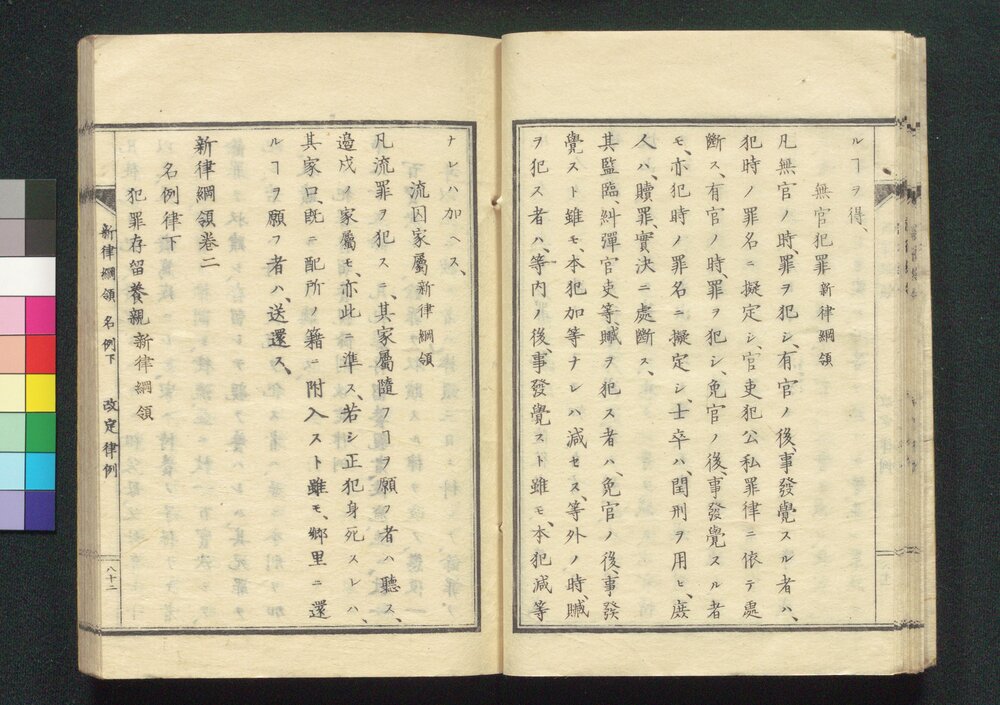 ルヿヲ得、
無官犯罪 新律綱領
凡無官ノ時、罪ヲ犯シ、有官ノ後、事發覺スル者ハ、
犯時ノ罪名ニ擬定シ、官吏犯公私罪律ニ依テ處
斷ス、有官ノ時、罪ヲ犯シ、免官ノ後、事發覺スル者
モ、亦犯時ノ罪名ニ擬定シ、士卒ハ、閏刑ヲ用ヒ、庶
人ハ、贖罪、實決ニ處斷ス、
其監臨、糾彈官吏等、贓ヲ犯ス者ハ、免官ノ後、事發
覺スト雖モ、本犯加等ナレハ減セス、等外ノ時、贓
ヲ犯ス者ハ、等内ノ後、事發覺スト雖モ、本犯減等
ナレハ加ヘス、
流囚家屬 新律綱領
凡流罪ヲ犯ス、其家屬隨フヿヲ願フ者ハ聽ス、
邉戍ノ家屬モ、亦此ニ準ス、若シ正犯身死スレハ、
其家口既ニ配所ノ籍ニ附入スト雖モ、郷里ニ還
ルヿヲ願フ者ハ、送還ス、
新律綱領卷二
名例律下
犯罪存留養親 新律綱領
新律綱領 名例下 改定律例
八十二